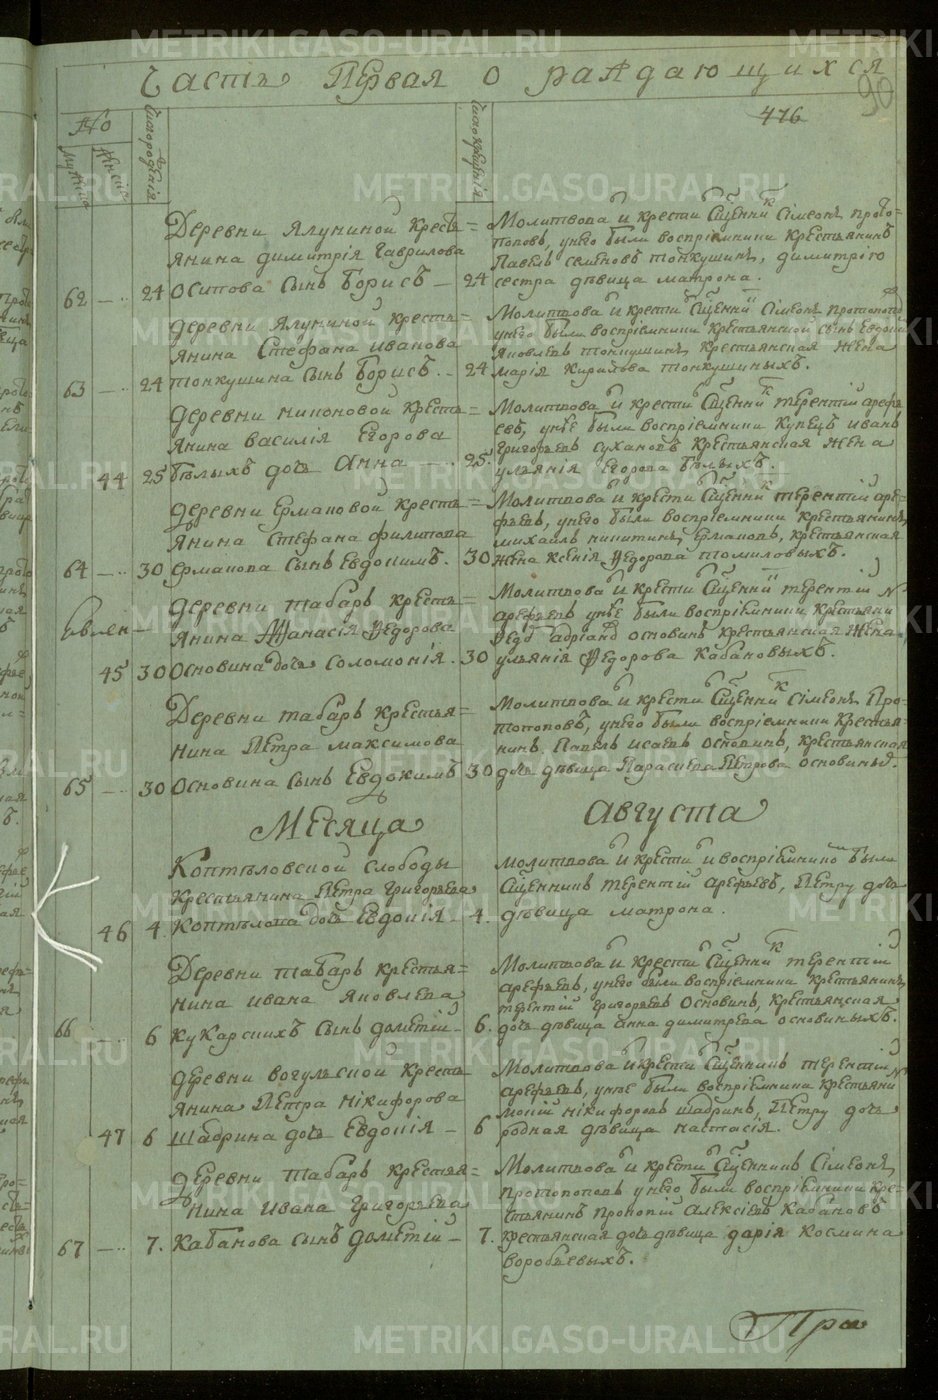 Часть Первая о раждающихся
90
476
№
Мужеска
Женска
Число рожденія
Число крещенія
Деревни Ялуниной кресть=
янина димитрія Гаврилова
62 — 24 Осипова сынъ Борисъ — 24
Молитвова и крести Сщенник Сімеонъ прото=
поповъ, у него были воспріемники крестьянинъ
Павелъ тонкушинъ, димитрію
сестра дѣвица матрона.
деревни Ялуниной кресть=
янина Стефана иванова
63 — 24 тонкушина сынъ Борисъ. — 24
Молитвова и крести Сщенник Сімеонъ протопопов
у него были воспріемники крестьянской сынъ
Яковлевъ тонкушинъ, крестьянская жена
марія Кирилова тонкушиныхъ.
деревни никоновой кресть=
янина василія Егорова
44 25 бѣлыхъ дочь Анна — 25.
Молитвова и крести Сщенник терентій арефь=
евъ, у нее были воспріемники Купецъ иванъ
григорьевъ сухановъ крестьянская жена
ульянія Егорова бѣлыхъ.
деревни Ермаковой кресть=
янина Стефана филипова
64 — 30 ермакова сынъ Евдокимъ. 30
Молитвова и крести Сщенник терентій аре=
фьевъ, у него были воспріемники крестьянинъ
михаилъ никитинъ Ермаковъ, крестьянская
жена ксенія Федорова томиловыхъ.
деревни табаръ кресть=
янина Афанасія Федорова
45 30 Основина дочь соломонія. 30
Молитвова и крести Сщенник терентій
арефьевъ у нее были воспріемники крестьяни
основинъ крестьянская жена
ульянія Федорова Кабановыхъ.
Деревни табаръ крестья=
нина Петра максимова
65 — 30 Основина сынъ Евдокимъ 30
Молитвова и крести Сщенник Сімеонъ Про=
топоповъ, у него были воспріемники крестья=
нинъ Павелъ исаевъ основинъ, крестьянская
дочь дѣвица Параскева Петрова основиныхъ.
Месяца Августа
Коптѣловской слободы
крестьянина Петра григорьева
46 4. Коптѣлова дочь Евдокія — 4.
молитвова и крести и воспріемнико были
Сщенникъ терентій арефьевъ, Петру дочь
дѣвица матрона.
Деревни табаръ крестья=
нина ивана Яковлева
66 6 кукарскихъ сынъ дометій — 6.
Молитвова и крести Сщенник терентій
арефьевъ, у него были воспріемники крестьянинъ
терентій григорьевъ Основинъ, крестьянская
дочь дѣвица анна димитрева основиныхъ.
деревни вогульской кресть=
янина Петра нікифорова
47 6 шадрина дочь Евдокія — 6
Молитвова и крести Сщенникъ терентій
арефьевъ, у нее были воспріемники крестьяни
нікифоровъ шадринъ, Петру дочь
родная дѣвица настасія.
деревни табаръ крестья=
нина ивана григорьева
67 — 7. Кабанова сынъ дометій — 7.
Молитвова и крести Сщенникъ Сімеонъ
протопоповъ у него были воспріемники кре=
стьянинъ прокопій алексѣевъ Кабановъ
крестьянская дочь дѣвица дарія космина
воробьевыхъ.
METRIKI.GASO-URAL.RU